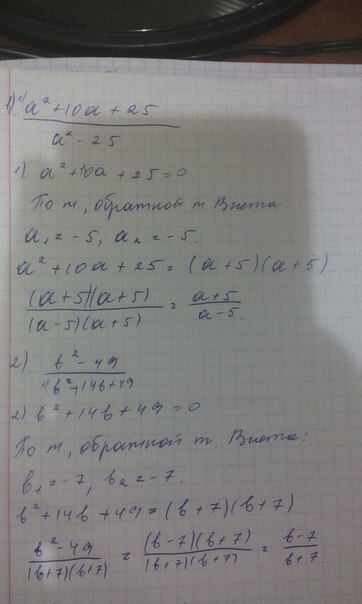 1) 1) a² + 10a + 25 / a² - 25
1). a² + 10a + 25 = 0
По т., обратной т. Виета:
a₁ = -5, a₂ = -5.
a² + 10a + 25 = (a + 5)(a + 5)
(a + 5)(a + 5) / (a - 5)(a + 5) = a + 5 / a - 5.
2). b² - 49 / 1) b² + 14b + 49
2) b² + 14b + 49 = 0
По т., обратной т. Виета:
b₁ = -7, b₂ = -7.
b² + 14b + 49 = (b + 7)(b + 7)
b² - 49 / (b + 7)(b + 7) = (b - 7)(b + 7) / (b + 7)(b + 7) = b - 7 / b + 7.